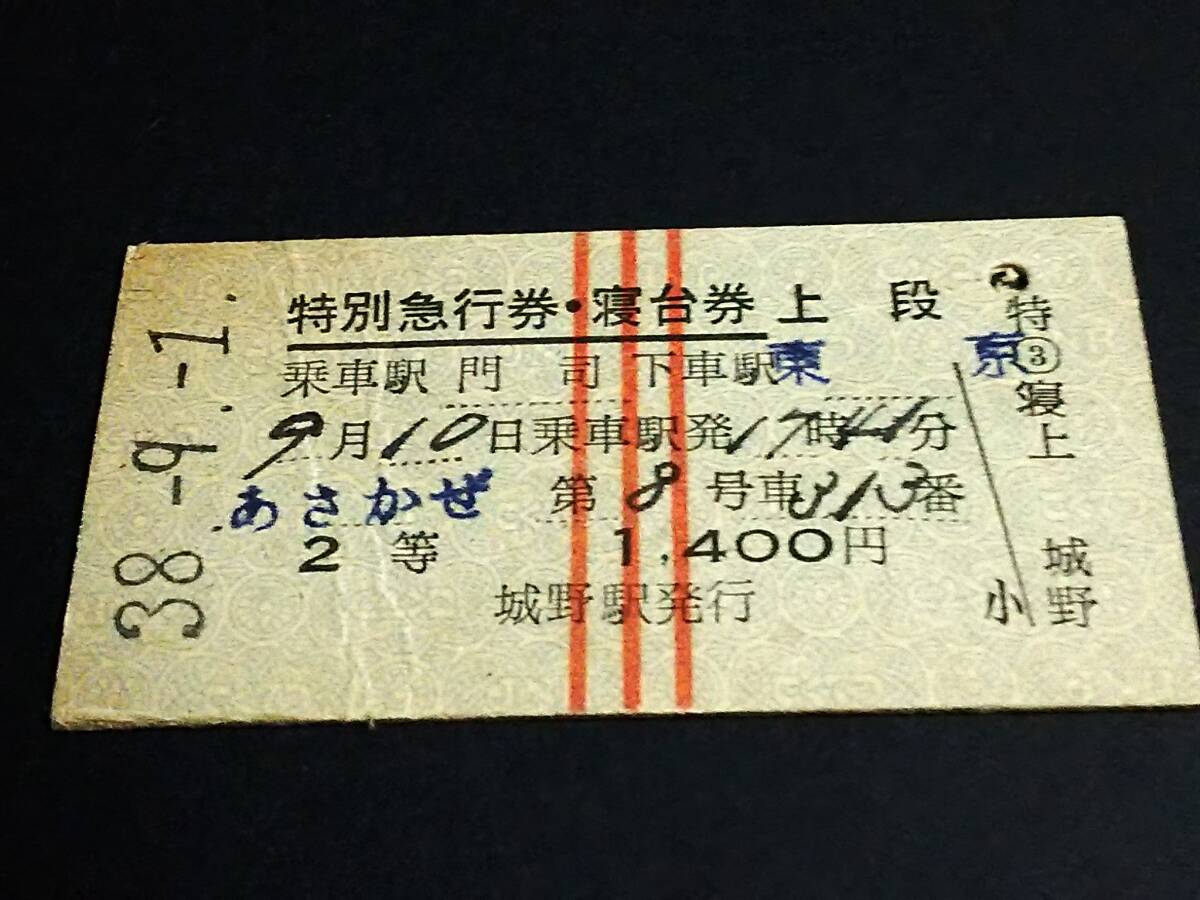 38.-9.-1.
特別急行券・寝台券 上段
乗車駅 門司 下車駅 東京
9月10日乗車駅発17時41分
あさかぜ 第8号車 13番
2等 1,400円
城野駅発行
特③寝上
小
城野